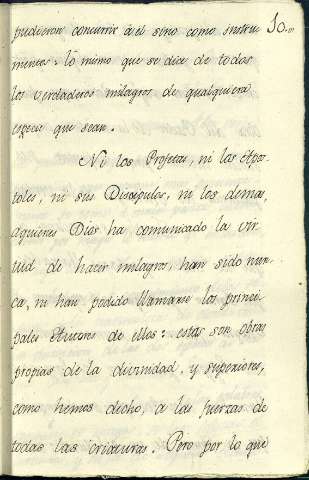 10..
pudieron concurrir á el sino como instru-
mentos: lo mimo que se dice de todos
los verdaderos milagros de qualquiera
especie que sean.
Ni los Profetas, ni los Apos-
toles, ni sus Discipulos, ni los demas,
aquienes Dios ha comunicado la vir-
tud de hacer milagros, han sido nun-
ca, ni han podido llamarse los princi-
pales Autores de ellos: estas son obras
propias de la divinidad, y superiores,
como hemos dicho, a las fuerzas de
todas las criaturas. Pero por lo que